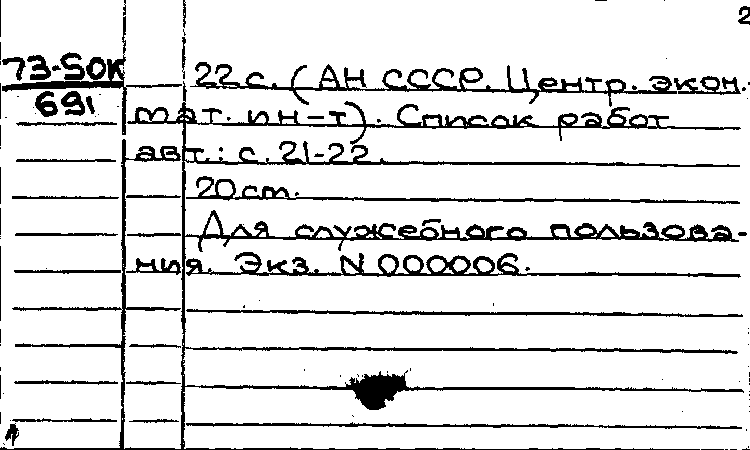 2
73-50К
691
22 с. (АН СССР. Центр. экон.-
мат. ин-т). Список работ
авт.: с. 21-22.
20 см.
Для служебного пользова-
ния. Экз. N 000006.